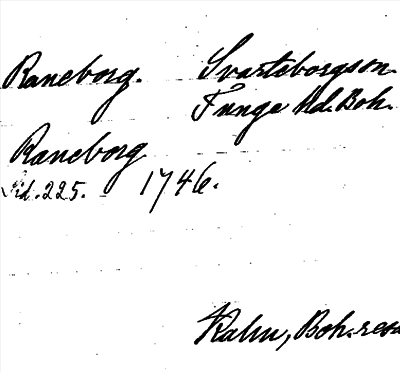 Raneborg. Svarteborgs sn.
Tunge Hd. Boh.
Raneborg
Sid. 225. 1746.
Kalm, Boh. resa